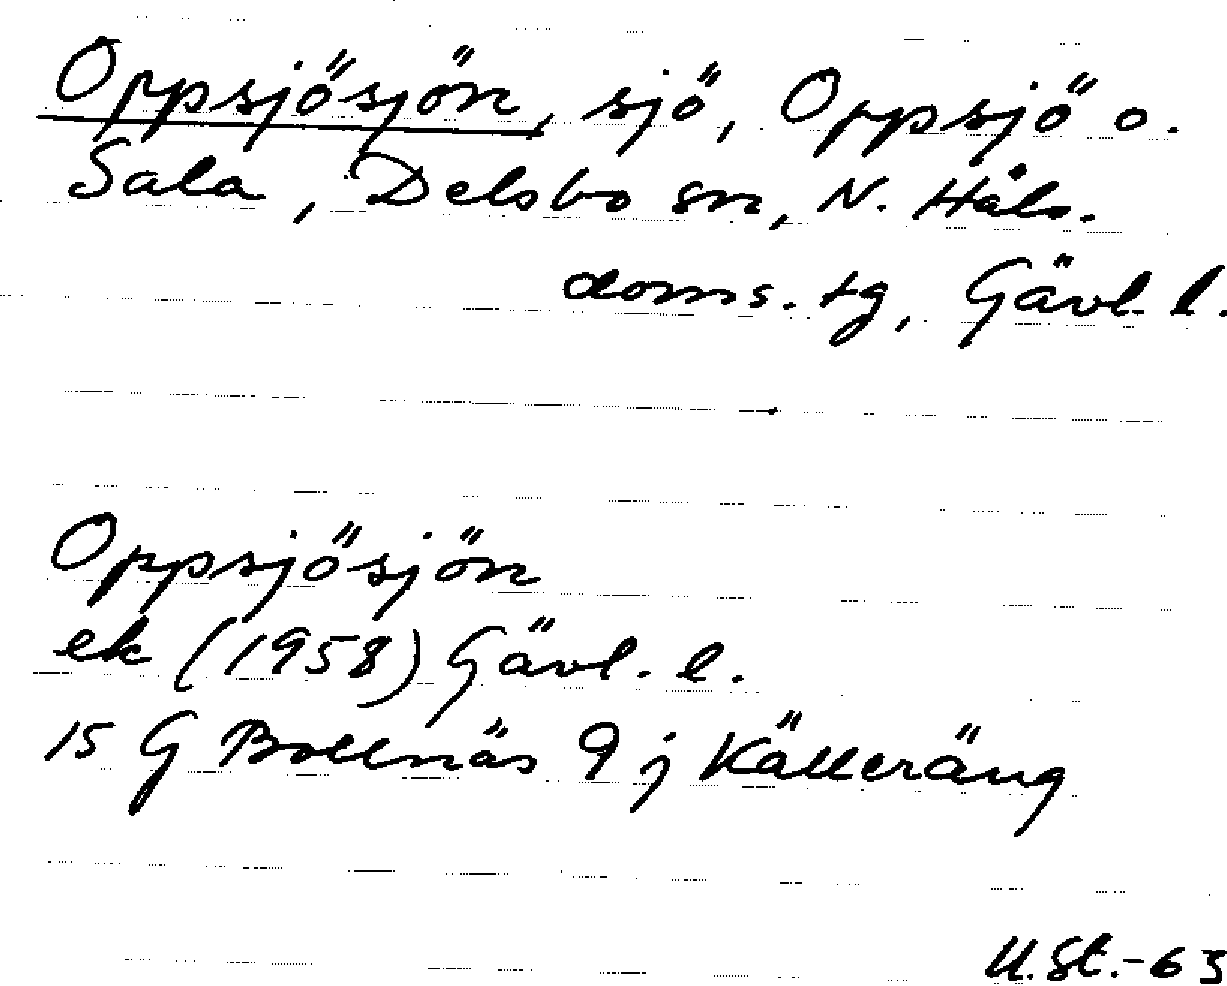 Oppsjösjön, sjö, Oppsjö o.
Sala, Delsbo sn, N. Häls.
doms. tg, Gävl. l.
Oppsjösjön
ek (1958) Gävl. l.
15 G Bollnäs 9 j Källeräng
U.St.-63